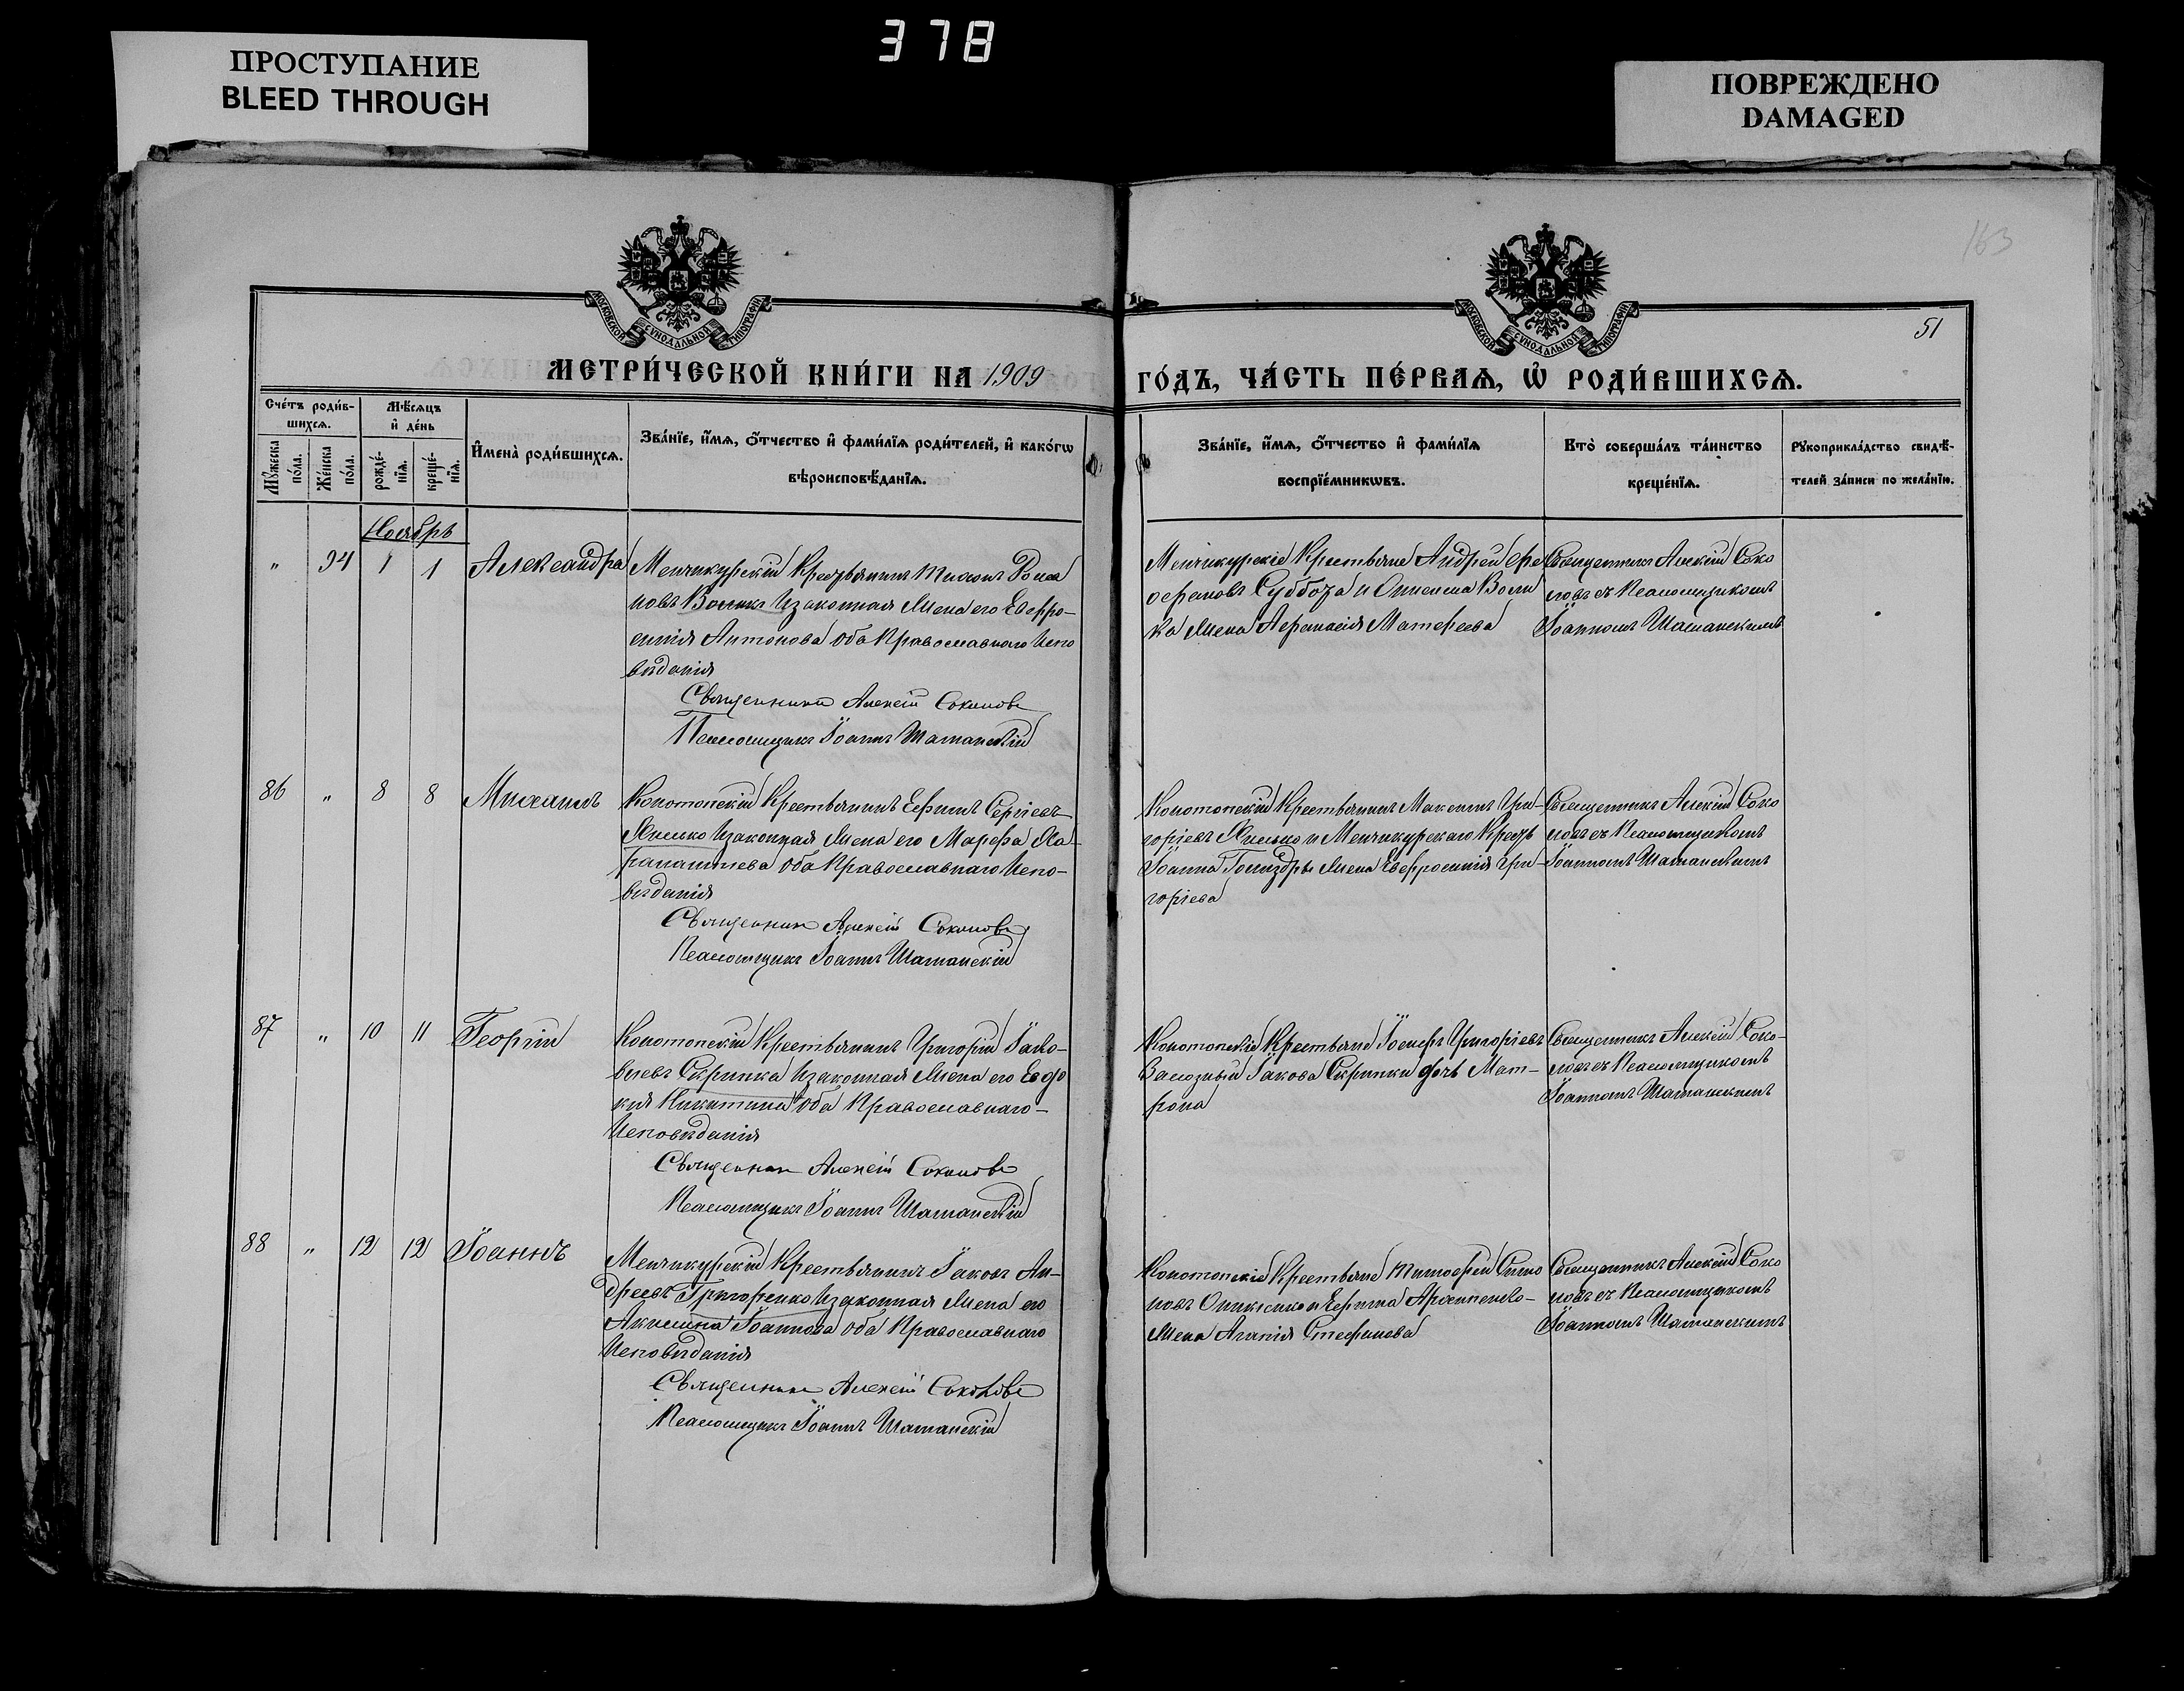 378
ПРОСТУПАНИЕ
BLEED THROUGH
ПОВРЕЖДЕНО
DAMAGED
163
51
МОСКОВСКОЙ СѴНОДАЛЬНОЙ ТИПОГРАФІИ
МОСКОВСКОЙ СѴНОДАЛЬНОЙ ТИПОГРАФІИ
МЕТРИ́ЧЕСКОЙ КНИ́ГИ НА 1909
ГО́ДЪ, ЧА́СТЬ ПЕ́РВАѦ, Ѡ҆ РОДИ́ВШИХСѦ.
Сче́тъ роди́в-
шихсѧ.
Мѣ́сѧцъ
и҆ де́нь
Мꙋ́жеска
по́ла.
Же́нска
по́ла.
рожде́-
нїѧ.
креще́-
нїѧ.
И҆мена̀ роди́вшихсѧ.
Зва́нїе, и҆́мѧ, ѻ҆́тчество и҆ фами́лїѧ роди́телей, и҆ како́гѡ
вѣроисповѣ́данїѧ.
Зва́нїе, и҆́мѧ, ѻ҆́тчество и҆ фами́лїѧ
воспрїе́мникѡвъ.
Кто̀ соверша́лъ та́инство
креще́нїѧ.
Рꙋкоприкла́дство свидѣ́-
телей за́писи по жела́нїю.
Ноябрь
" 94 1 1 Александра
Менчикурскій Крестьянинъ Тихонъ Рома
новъ Воликъ и законная жена его Евфро-
синія Антонова оба Православнаго Испо
вѣданія
Священникъ Алексій Соколовъ
Псаломщикъ Іоаннъ Шаманскій
Менчикурскіе Крестьяне Андрей Фе
офановъ Суббота и Воли
ка жена Афанасія Матфеева
Священникъ Алексій Соко
ловъ съ Псаломщикомъ
Іоанномъ Шаманскимъ
86 " 8 8 Михаилъ
Конотопскій Крестьянинъ Ефимъ Сергіевъ
Яцысько и законная жена его Марфа Ха
рлампіева оба Православнаго Испо-
вѣданія
Священникъ Алексій Соколовъ
Псаломщикъ Іоаннъ Шаманскій
Конотопскій Крестьянинъ Максимъ Гри-
горіевъ и Менчикурскаго Крест
Іоанна жена Евфросинія Гри-
горіева
Священникъ Алексій Соко
ловъ съ Псаломщикомъ
Іоанномъ Шаманскимъ
87 " 10 11 Георгій
Конотопскій Крестьянинъ Григорій Іако-
влевъ Скрипка и законная жена его Евдо
кія Никитина оба Православнаго-
Исповѣданія
Священникъ Алексій Соколовъ
Псаломщикъ Іоаннъ Шаманскій
Конотопскіе Крестьяне Іосифъ Григоріевъ
Іакова Скрипки дочь Мат-
рона
Священникъ Алексій Соко-
ловъ съ Псаломщикомъ
Іоанномъ Шаманскимъ
88 " 12 12 Іоаннъ
Менчикурскій Крестьянинъ Іаковъ Ан-
дреевъ Григоренко и законная жена его
Акилина Іоаннова оба Православнаго
Исповѣданія
Священникъ Алексій Соколовъ
Псаломщикъ Іоаннъ Шаманскій
Конотопскіе Крестьяне Тимофей Симо
новъ и Ефима
жена Агапія Стефанова
Священникъ Алексій Соко
ловъ съ Псаломщикомъ
Іоанномъ Шаманскимъ